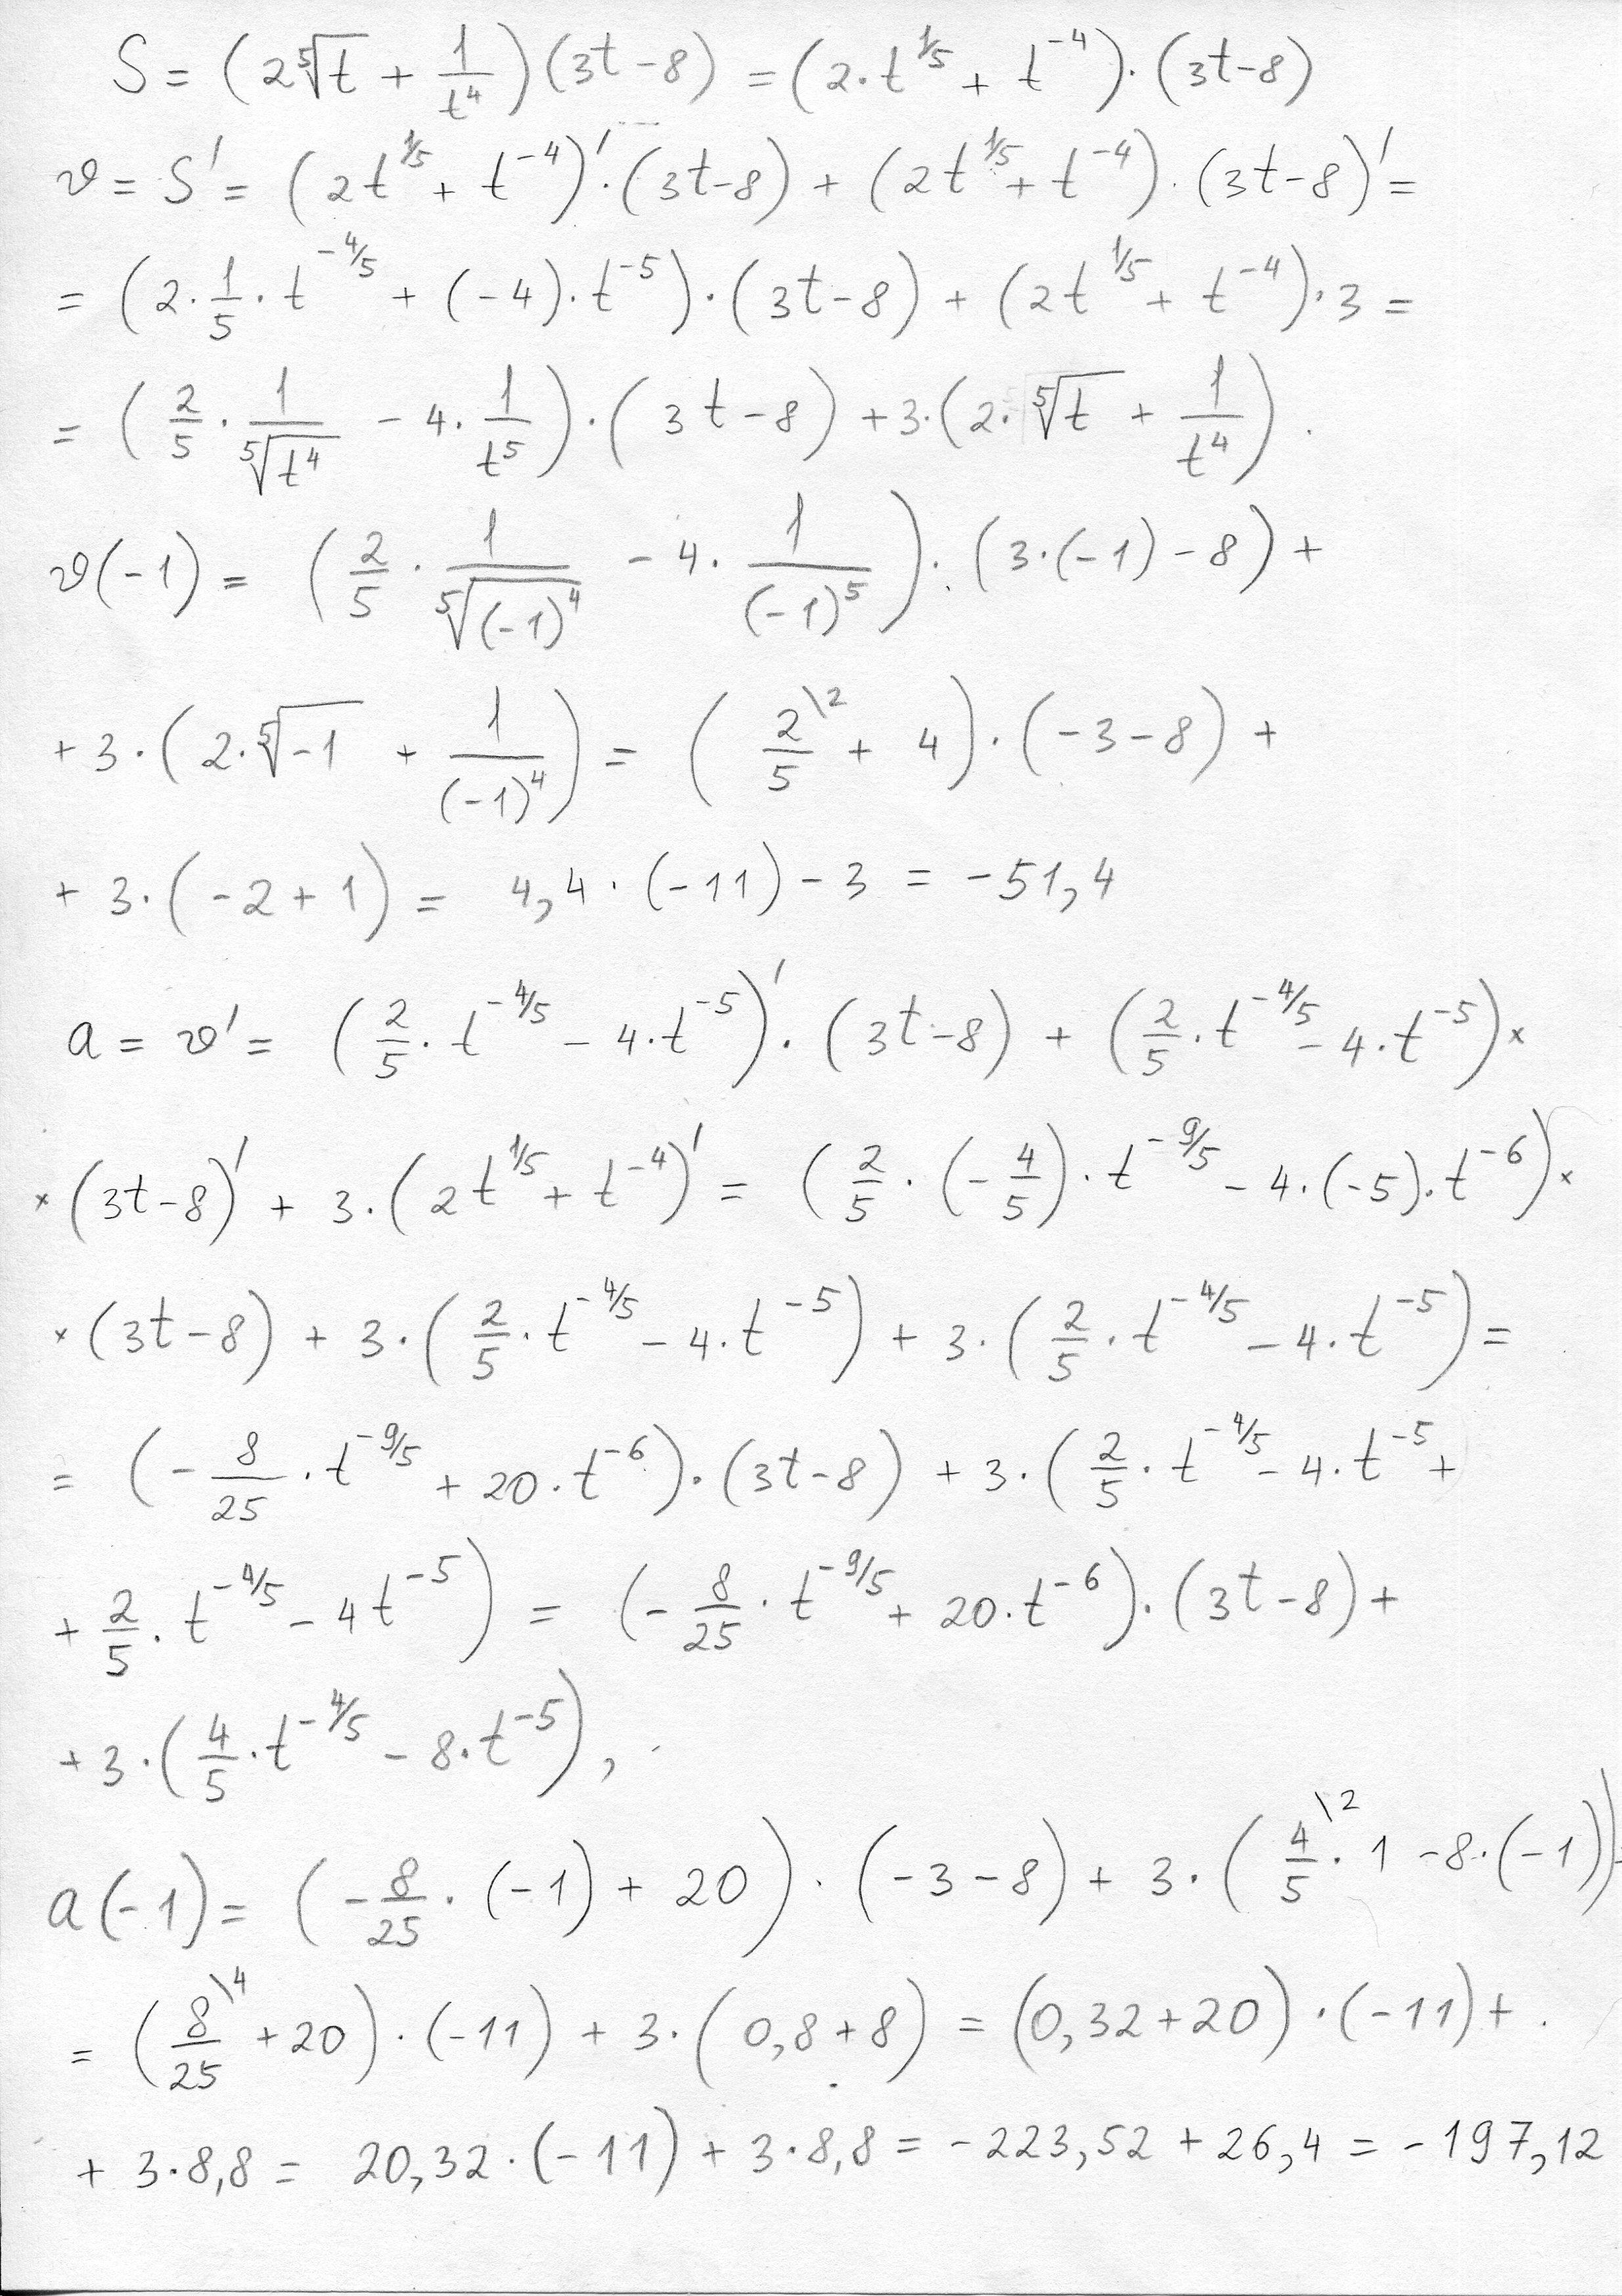 S = (2⁵√t + 1/t⁴)(3t-8) = (2·t^(1/5) + t⁻⁴)·(3t-8)
v = S' = (2t^(1/5) + t⁻⁴)'·(3t-8) + (2t^(1/5) + t⁻⁴)·(3t-8)' =
= (2·1/5·t^(-4/5) + (-4)·t⁻⁵)·(3t-8) + (2t^(1/5) + t⁻⁴)·3 =
= (2/5·1/⁵√t⁴ - 4·1/t⁵)·(3t-8) + 3·(2·⁵√t + 1/t⁴).
v(-1) = (2/5·1/⁵√(-1)⁴ - 4·1/(-1)⁵)·(3·(-1)-8) +
+ 3·(2·⁵√-1 + 1/(-1)⁴) = (2/5\2 + 4)·(-3-8) +
+ 3·(-2+1) = 4,4·(-11)-3 = -51,4
a = v' = (2/5·t^(-4/5) - 4·t⁻⁵)'·(3t-8) + (2/5·t^(-4/5) - 4·t⁻⁵)×
×(3t-8)' + 3·(2t^(1/5) + t⁻⁴)' = (2/5·(-4/5)·t^(-9/5) - 4·(-5)·t⁻⁶)×
×(3t-8) + 3·(2/5·t^(-4/5) - 4·t⁻⁵) + 3·(2/5·t^(-4/5) - 4·t⁻⁵) =
= (-8/25·t^(-9/5) + 20·t⁻⁶)·(3t-8) + 3·(2/5·t^(-4/5) - 4·t⁻⁵ +
+ 2/5·t^(-4/5) - 4t⁻⁵) = (-8/25·t^(-9/5) + 20·t⁻⁶)·(3t-8) +
+ 3·(4/5·t^(-4/5) - 8·t⁻⁵),
a(-1) = (-8/25·(-1) + 20)·(-3-8) + 3·(4/5\2·1 - 8·(-1))
= (8/25\4 + 20)·(-11) + 3·(0,8+8) = (0,32+20)·(-11) +
+ 3·8,8 = 20,32·(-11) + 3·8,8 = -223,52 + 26,4 = -197,12